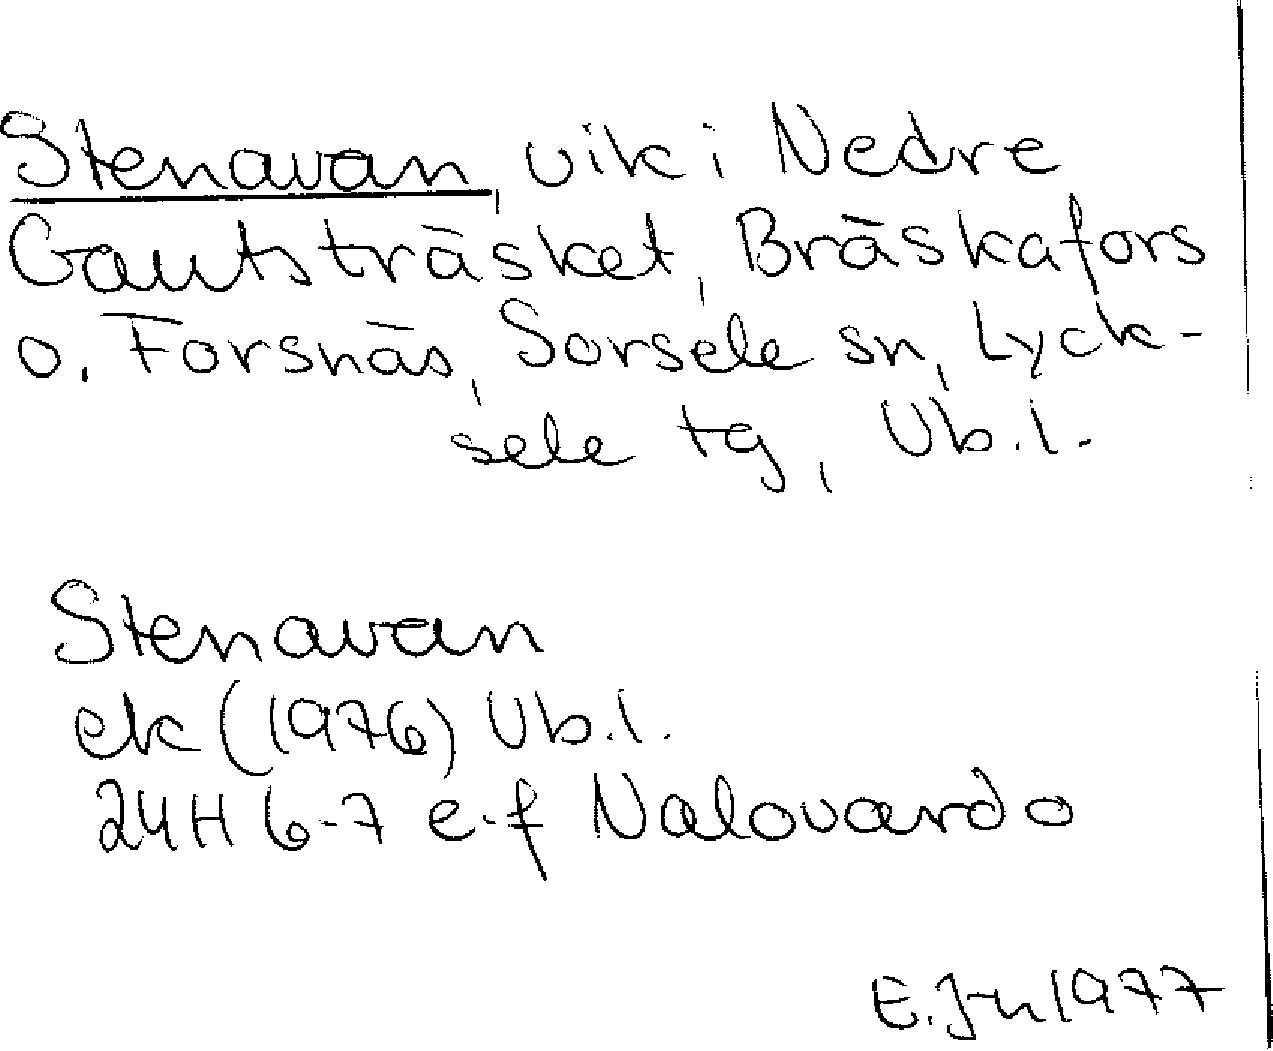 Stenavan, vik i Nedre
Gautsträsket, Bräskafors
o. Forsnäs, Sorsele sn, Lyck-
sele tg, Vb.l.
Stenavan
ek (1976) Vb.l.
24H 6-7 e-f Nalovardo
E. J-n 1977